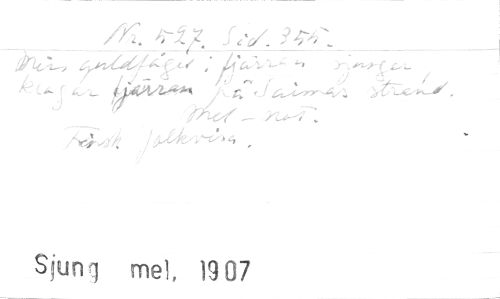 Nr. 527. Sid. 355.
Mins guldfågel i fjärran sjunger
klagar fjärran på Saimas strand.
Mel-not.
Finsk folkvisa.
Sjung mel, 1907